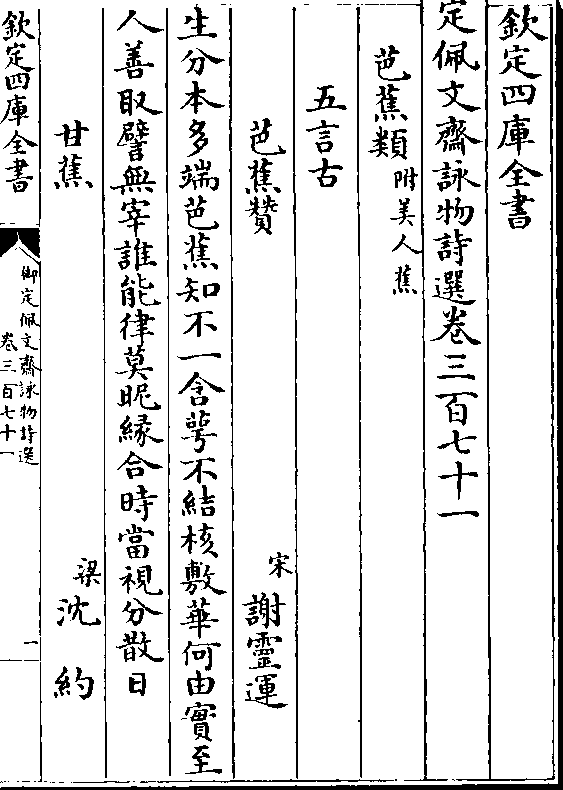 欽定四庫全書
定佩文齋詠物詩選卷三百七十一
芭蕉類附美人蕉
五言古
芭蕉贊 宋 謝靈運
生分本多端芭蕉知不一含萼不結核敷華何由實至
人善取譬無宰誰能律莫昵緣合時當視分散日
甘蕉 梁 沈約
欽定四庫全書
御定佩文齋詠物詩選
卷三百七十一
一